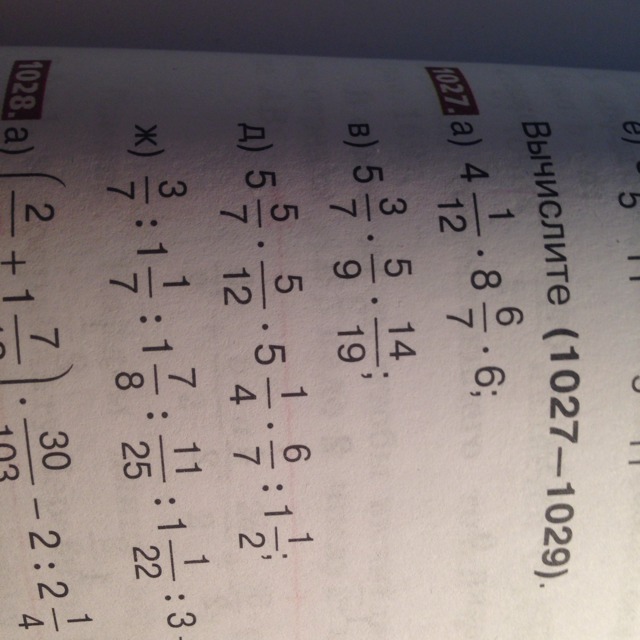 Вычислите (1027—1029).
1027 а) 4 1/12 · 8 6/7 · 6;
в) 5 3/7 · 5/9 · 14/19;
д) 5 5/7 · 5/12 · 5 1/4 · 6/7 : 1 1/2;
ж) 3/7 : 1 1/7 : 1 7/8 : 11/25 : 1 1/22 : 3
1028 а) · 30/103 − 2 : 2 1/4